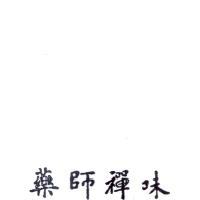 藥師禪味